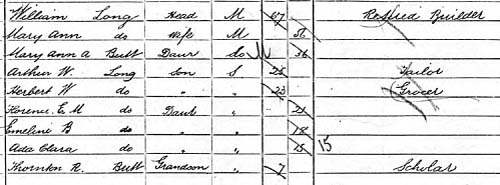 William Long Head M 57 Retired Builder
Mary Ann do Wife M 56
Mary Ann A Butt Daur do M 26
Arthur W. Long Son S 25 Tailor
Herbert W do " " 23 Grocer
Florence E M do Daur " 21
Emeline B do " " 18
Ada Clara do " " 15 15
Thornton R. Butt Grandson " 7 Scholar